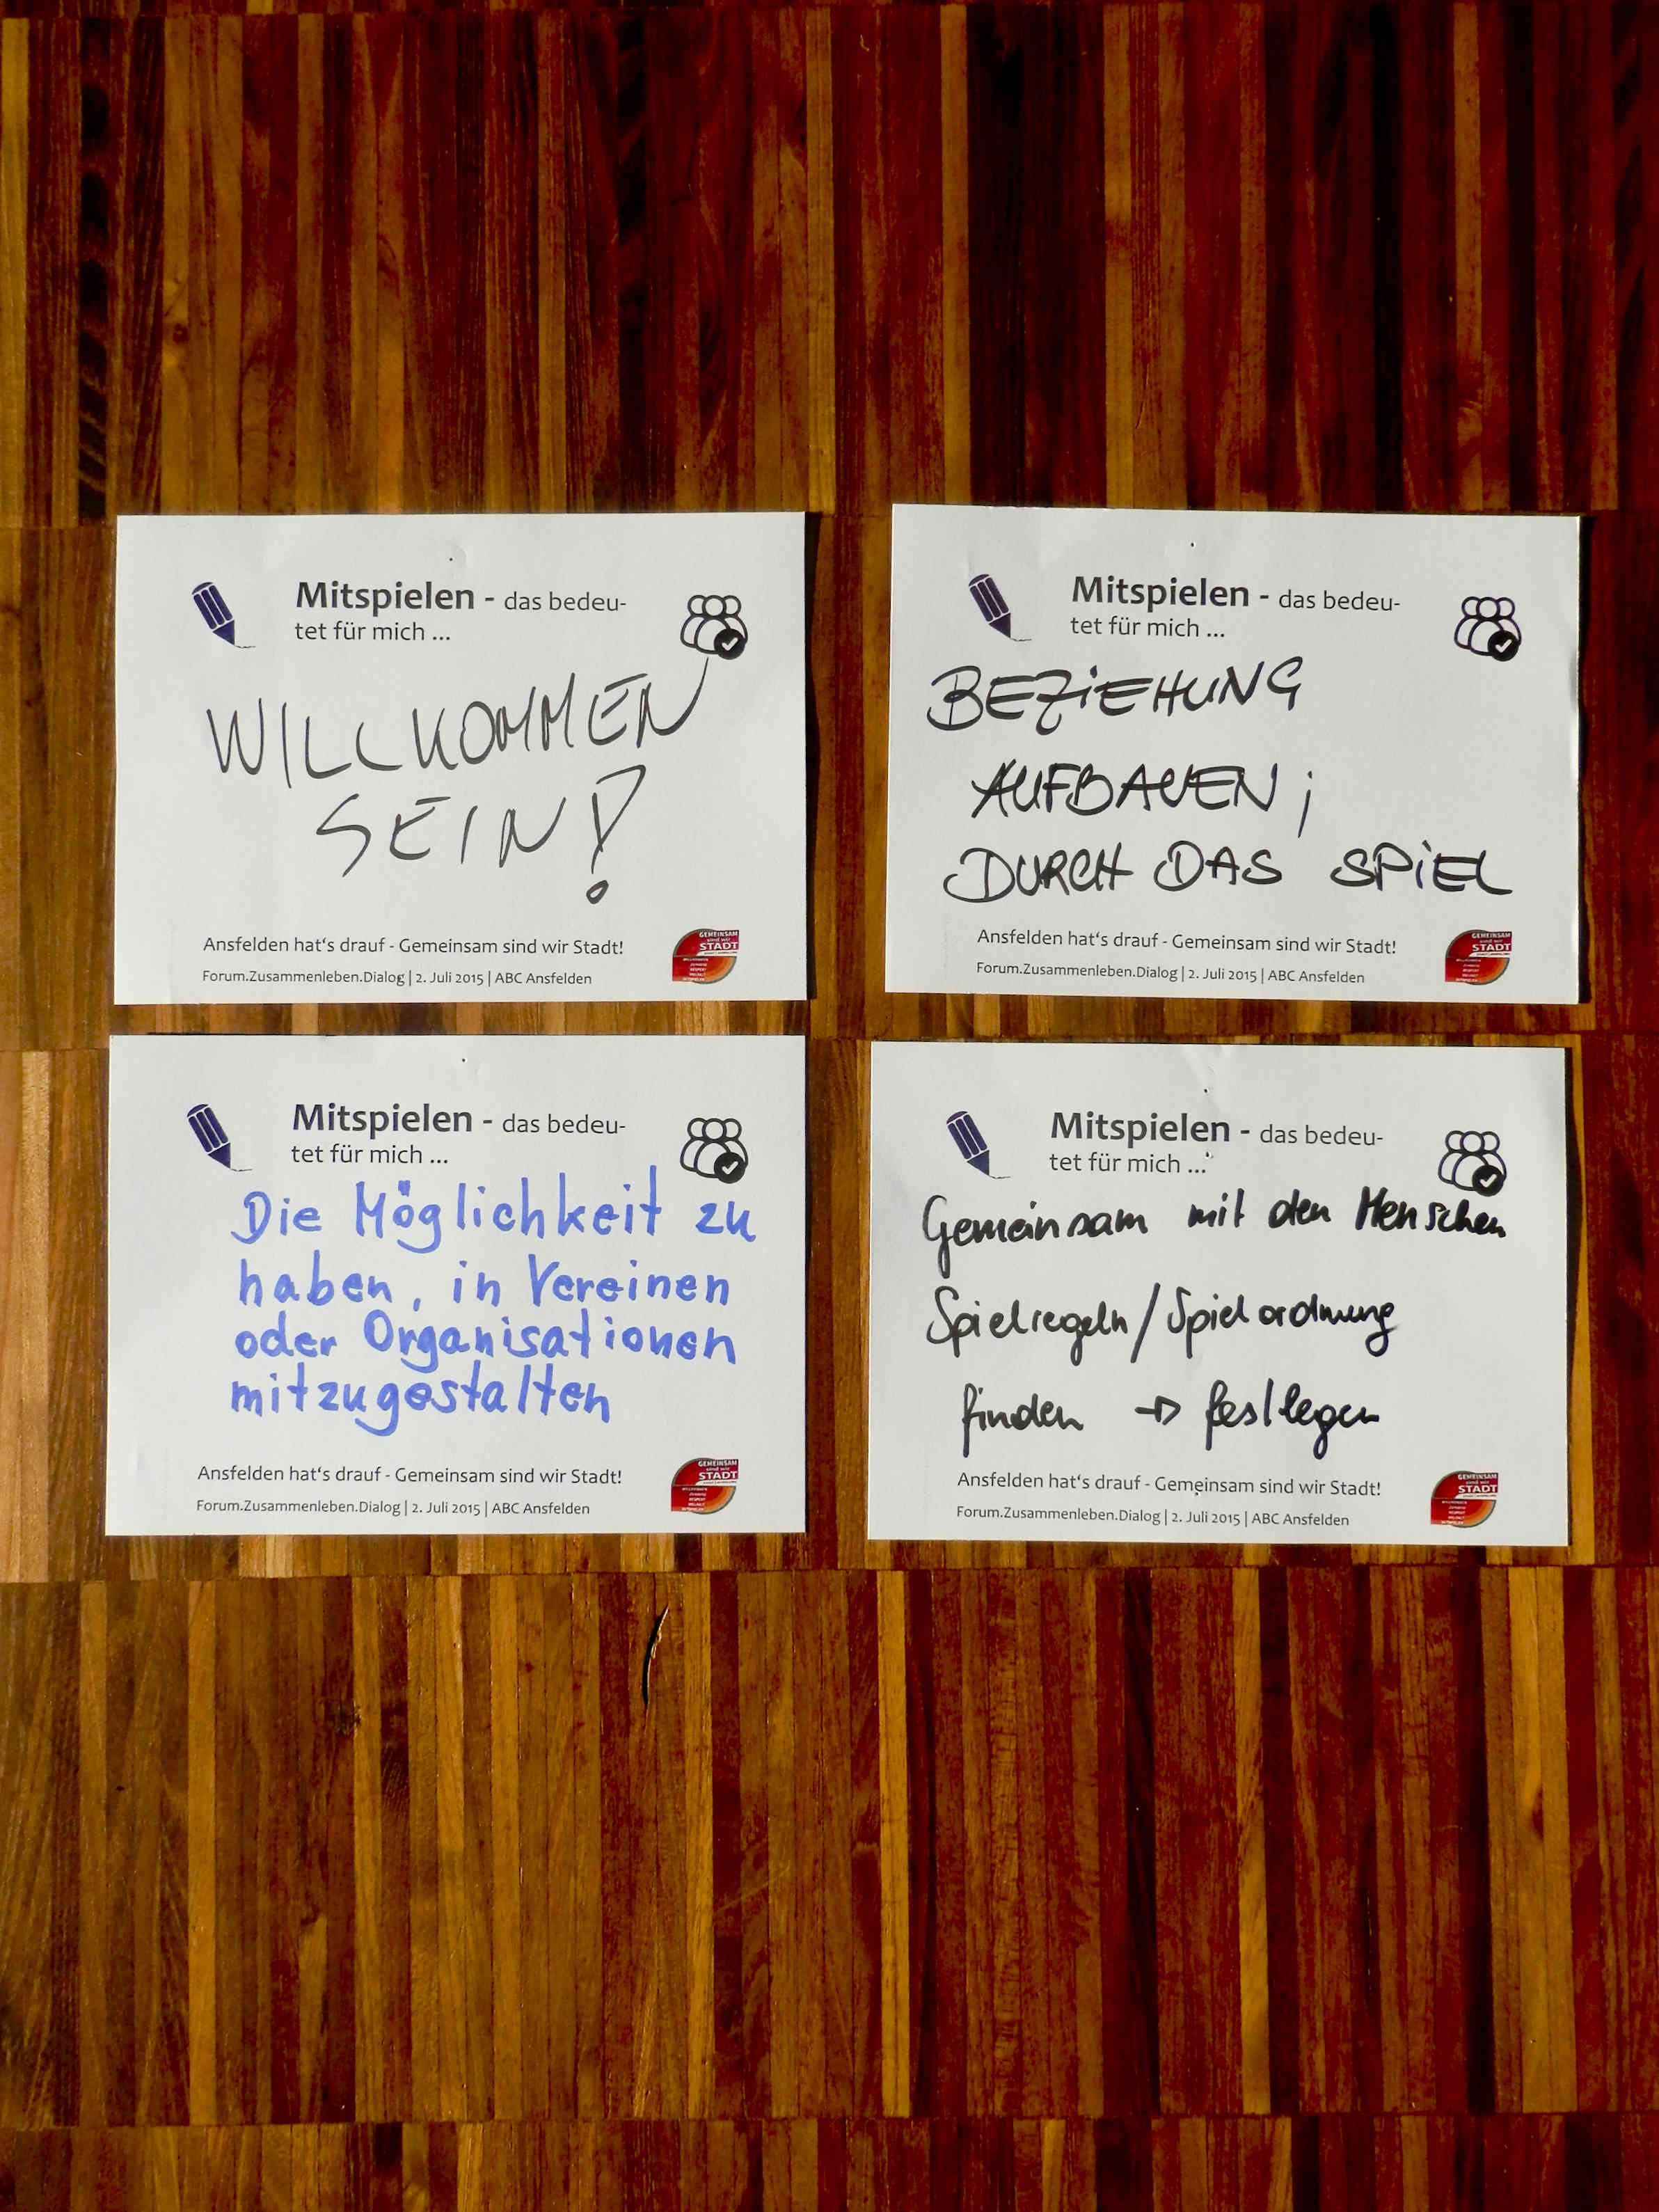 Mitspielen - das bedeu-
tet für mich ...
WILLKOMMEN
SEIN!
Ansfelden hat's drauf - Gemeinsam sind wir Stadt!
Forum.Zusammenleben.Dialog | 2. Juli 2015 | ABC Ansfelden
GEMEINSAM
sind wir
STADT
Mitspielen - das bedeu-
tet für mich ...
BEZiEHUNG
AUFBAUEN ;
DURCH DAS SPiEL
Ansfelden hat's drauf - Gemeinsam sind wir Stadt!
Forum.Zusammenleben.Dialog | 2. Juli 2015 | ABC Ansfelden
GEMEINSAM
sind wir
STADT
Mitspielen - das bedeu-
tet für mich ...
Die Möglichkeit zu
haben, in Vereinen
oder Organisationen
mitzugestalten
Ansfelden hat's drauf - Gemeinsam sind wir Stadt!
Forum.Zusammenleben.Dialog | 2. Juli 2015 | ABC Ansfelden
GEMEINSAM
sind wir
STADT
Mitspielen - das bedeu-
tet für mich ...
Gemeinsam mit den Menschen
Spielregeln / Spielordnung
finden → festlegen
Ansfelden hat's drauf - Gemeinsam sind wir Stadt!
Forum.Zusammenleben.Dialog | 2. Juli 2015 | ABC Ansfelden
GEMEINSAM
sind wir
STADT